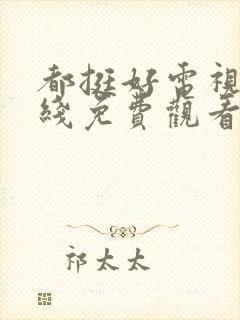 都挺好電視
綫免費觀看
祁太太